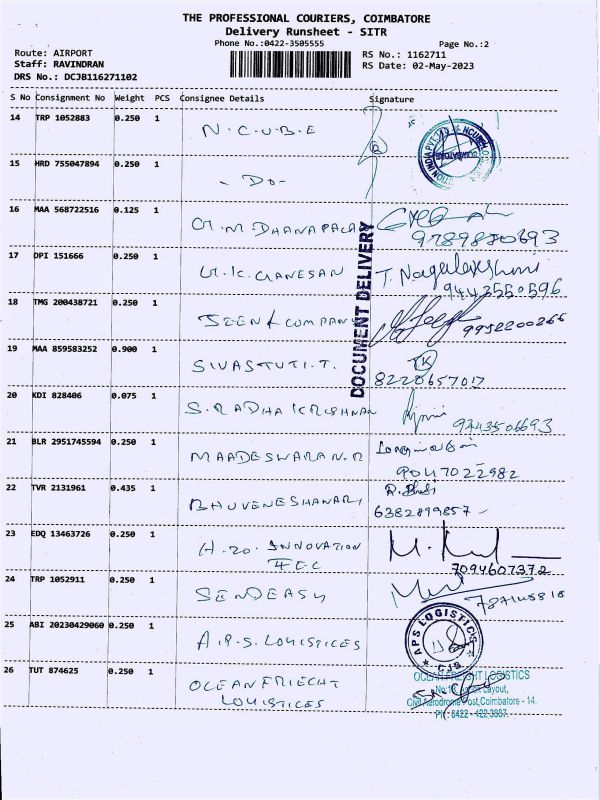 THE PROFESSIONAL COURIERS, COIMBATORE
Delivery Runsheet - SITR
Phone No.:0422-3505555
Page No.:2
Route: AIRPORT
RS No.: 1162711
Staff: RAVINDRAN
RS Date: 02-May-2023
DRS No.: DCJB116271102
S No Consignment No Weight PCS Consignee Details Signature
14 TRP 1052883 0.250 1 N.C.U.B.E
15 HRD 755047894 0.250 1 - DO -
16 MAA 568722516 0.125 1 DHANAPALAN
9789870693
17 DPI 151666 0.250 1 GANESAN T. Nagalakshmi
9443550596
18 TMG 200438721 0.250 1 SEEN & COMPANY
9952200266
19 MAA 859583252 0.900 1 SIVASTUTI.T. TK
8220657017
20 KDI 828406 0.075 1 S.RADHAKRISHNAN
9443506693
21 BLR 2951745594 0.250 1 MAADESWARAN.R
9047022982
22 TVR 2131961 0.435 1 BHUVENESHWARI
6382899857
23 EDQ 13463726 0.250 1 H.20. INNOVATION
7094607372
24 TRP 1052911 0.250 1 SENDEASY
25 ABI 20230429060 0.250 1 A.P.S. LOUISTICES
APS LOGISTICS
CJB
26 TUT 874625 0.250 1 OCEAN FRIECHT
LOUISTICES
OCEAN FREIGHT LOGISTICS
Layout,
Civil Aerodrome Post,Coimbatore - 14.
DOCUMENT DELIVERY